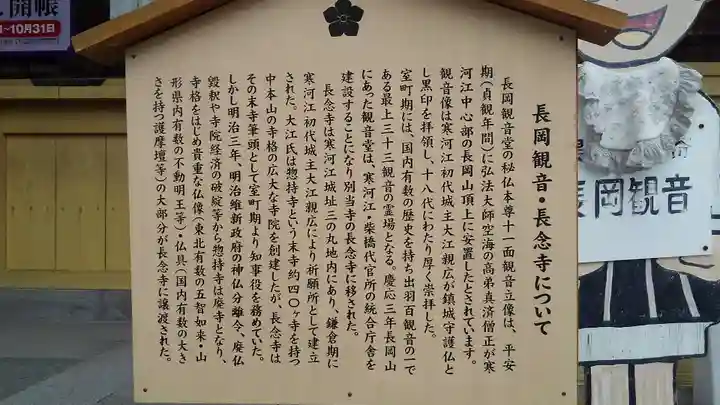 長岡観音・長念寺について
長岡観音堂の秘仏本尊十一面観音立像は、平安
期(貞観年間)に弘法大師空海の高弟真済僧正が寒
河江中心部の長岡山頂上に安置したとされています。
観音像は寒河江初代城主大江親広が鎮城守護仏と
し黒印を拝領し、十八代にわたり厚く崇拝した。
室町期には、国内有数の歴史を持ち出羽百観音の一で
ある最上三十三観音の霊場となる。慶応三年長岡山
にあった観音堂は、寒河江・柴橋代官所の統合庁舎を
建設することになり別当寺の長念寺に移された。
長念寺は寒河江城址三の丸地内にあり、鎌倉期に
寒河江初代城主大江親広により祈願所として建立
された。大江氏は惣持寺という末寺約四〇ヶ寺を持つ
中本山の寺格の広大な寺院を創建したが、長念寺は
その末寺筆頭として室町期より知事役を務めていた。
しかし明治三年、明治維新政府の神仏分離令、廃仏
毀釈や寺院経済の破綻等から惣持寺は廃寺となり、
寺格をはじめ貴重な仏像(東北有数の五智如来・山
形県内有数の不動明王等)・仏具(国内有数の大き
さを持つ護摩壇等)の大部分が長念寺に譲渡された。
開帳
10月31日
長岡観音